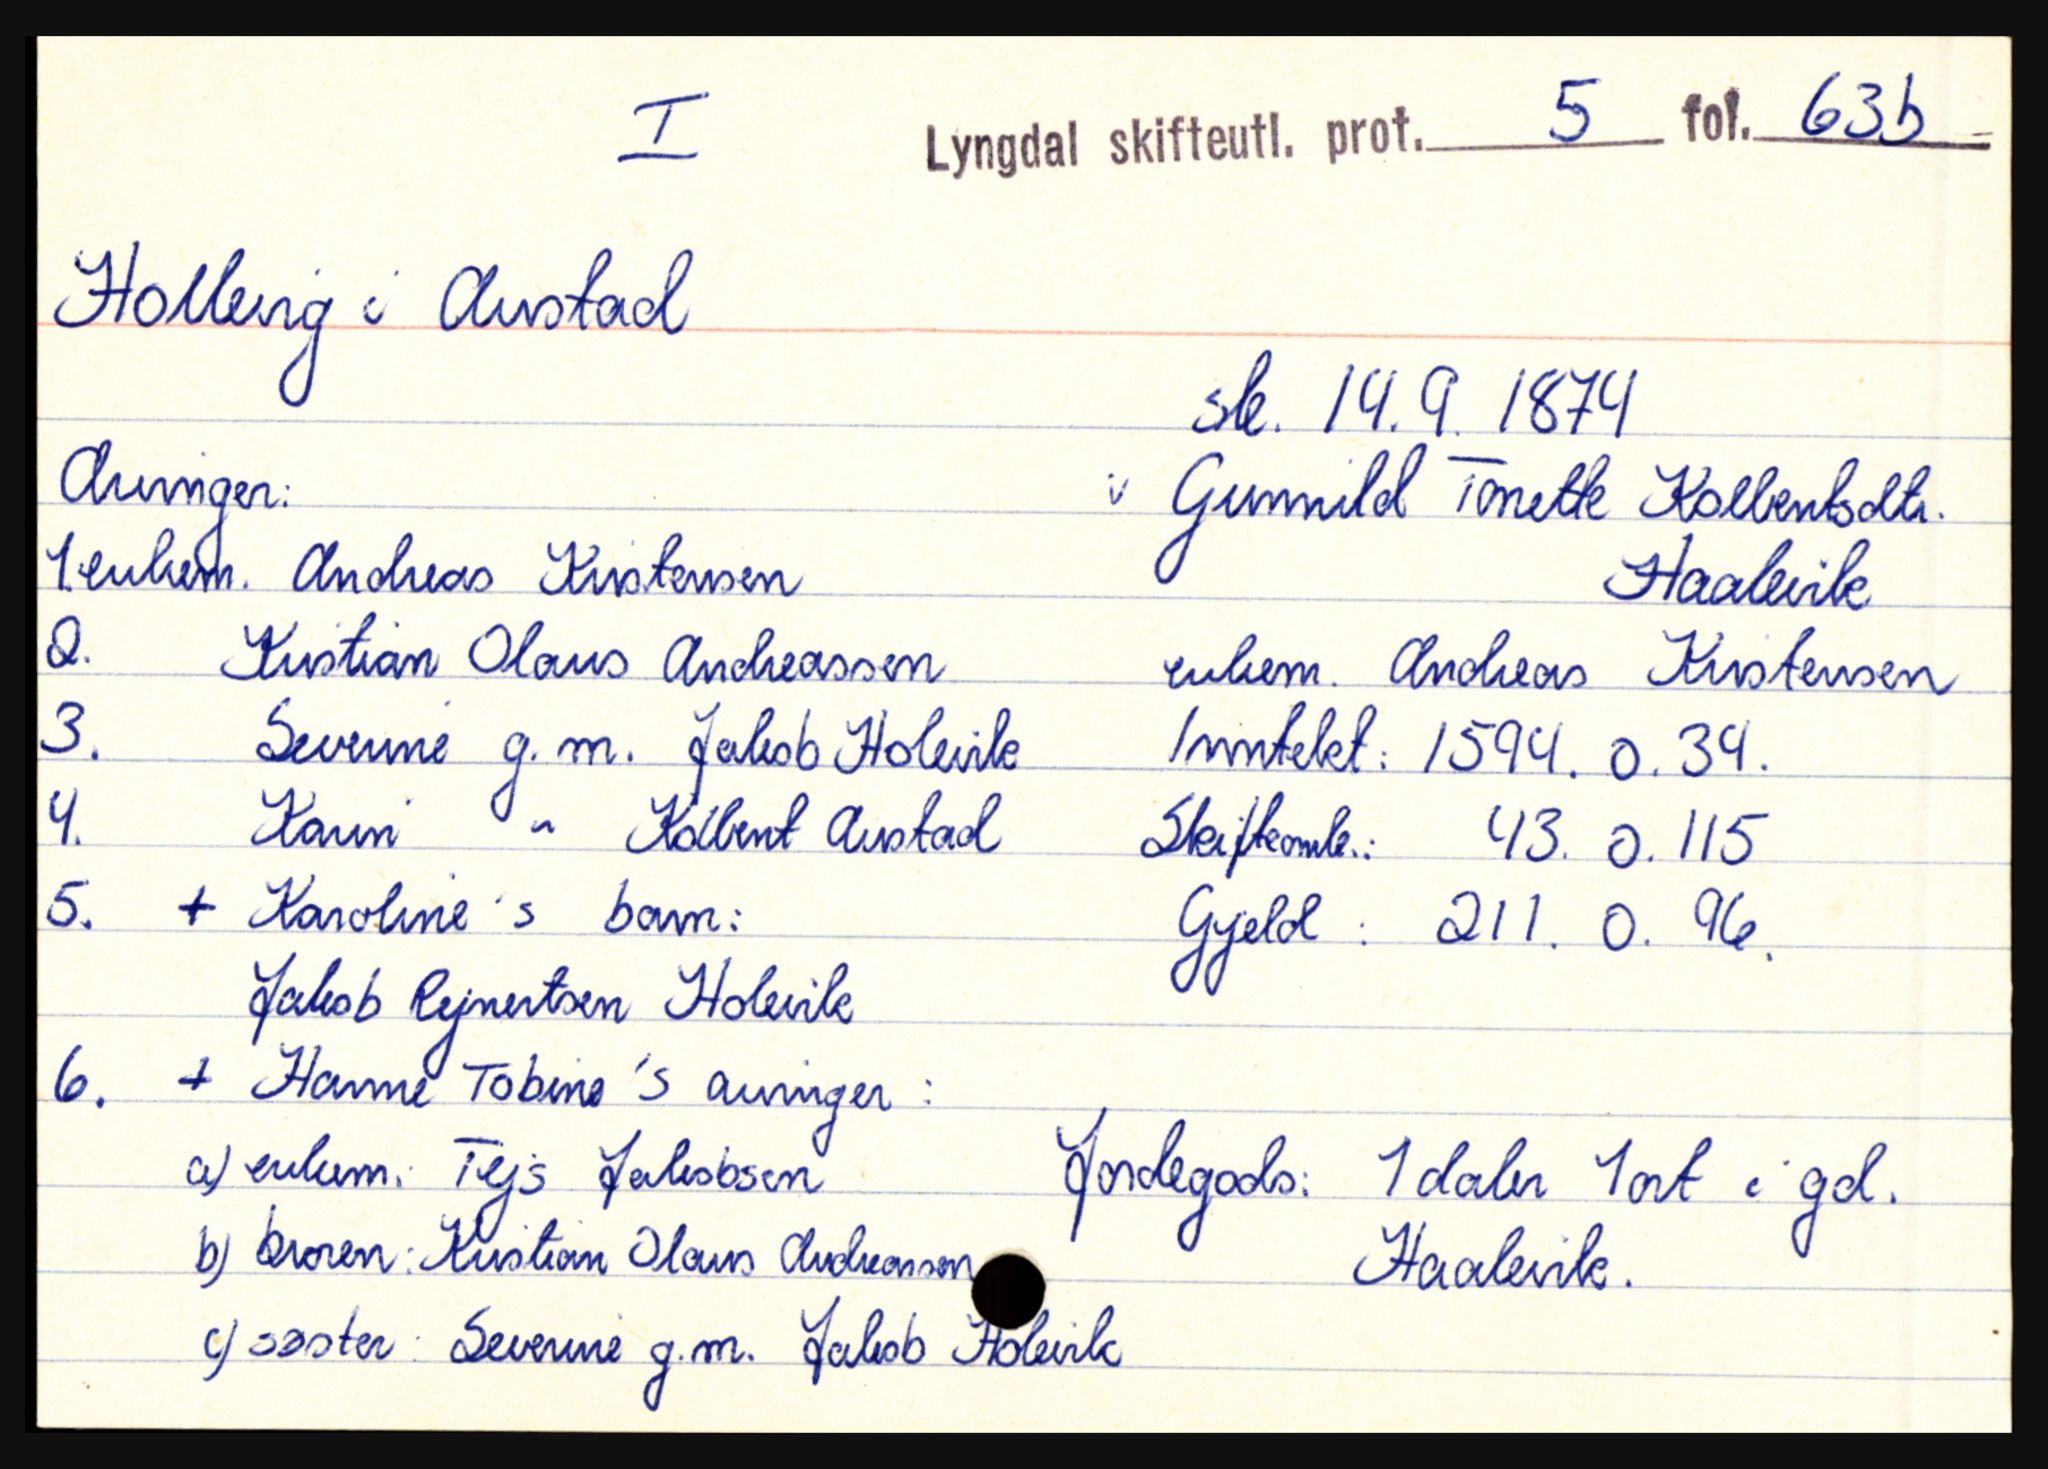 I
Lyngdal skifteutl. prot. 5 fol. 63b
Hollevig i Austad
sk. 14.9. 1874
Arvinger:
i Gunnild Tonette Kolbentsdtr.
Haalevik
1. enkem. Andreas Kristensen
2. Kristian Olaus Andreassen
enkem. Andreas Kristensen
3. Severine g.m. Jakob Holevik
Inntekt: 1594. 0. 34.
4. Karin " Kolbent Austad
Skifteomk.: 43. 0. 115
5. + Karoline's barn:
Gjeld : 211. 0. 96.
Jakob Rejnertsen Holevik
6. + Hanne Tobine's arvinger :
a) enkem: Tejs Jakobsen
Jordegods: 1 daler 1 ort i gd.
Haalevik.
b) broren: Kristian Olaus Andreassen
c) søster : Severine g.m. Jakob Holevik